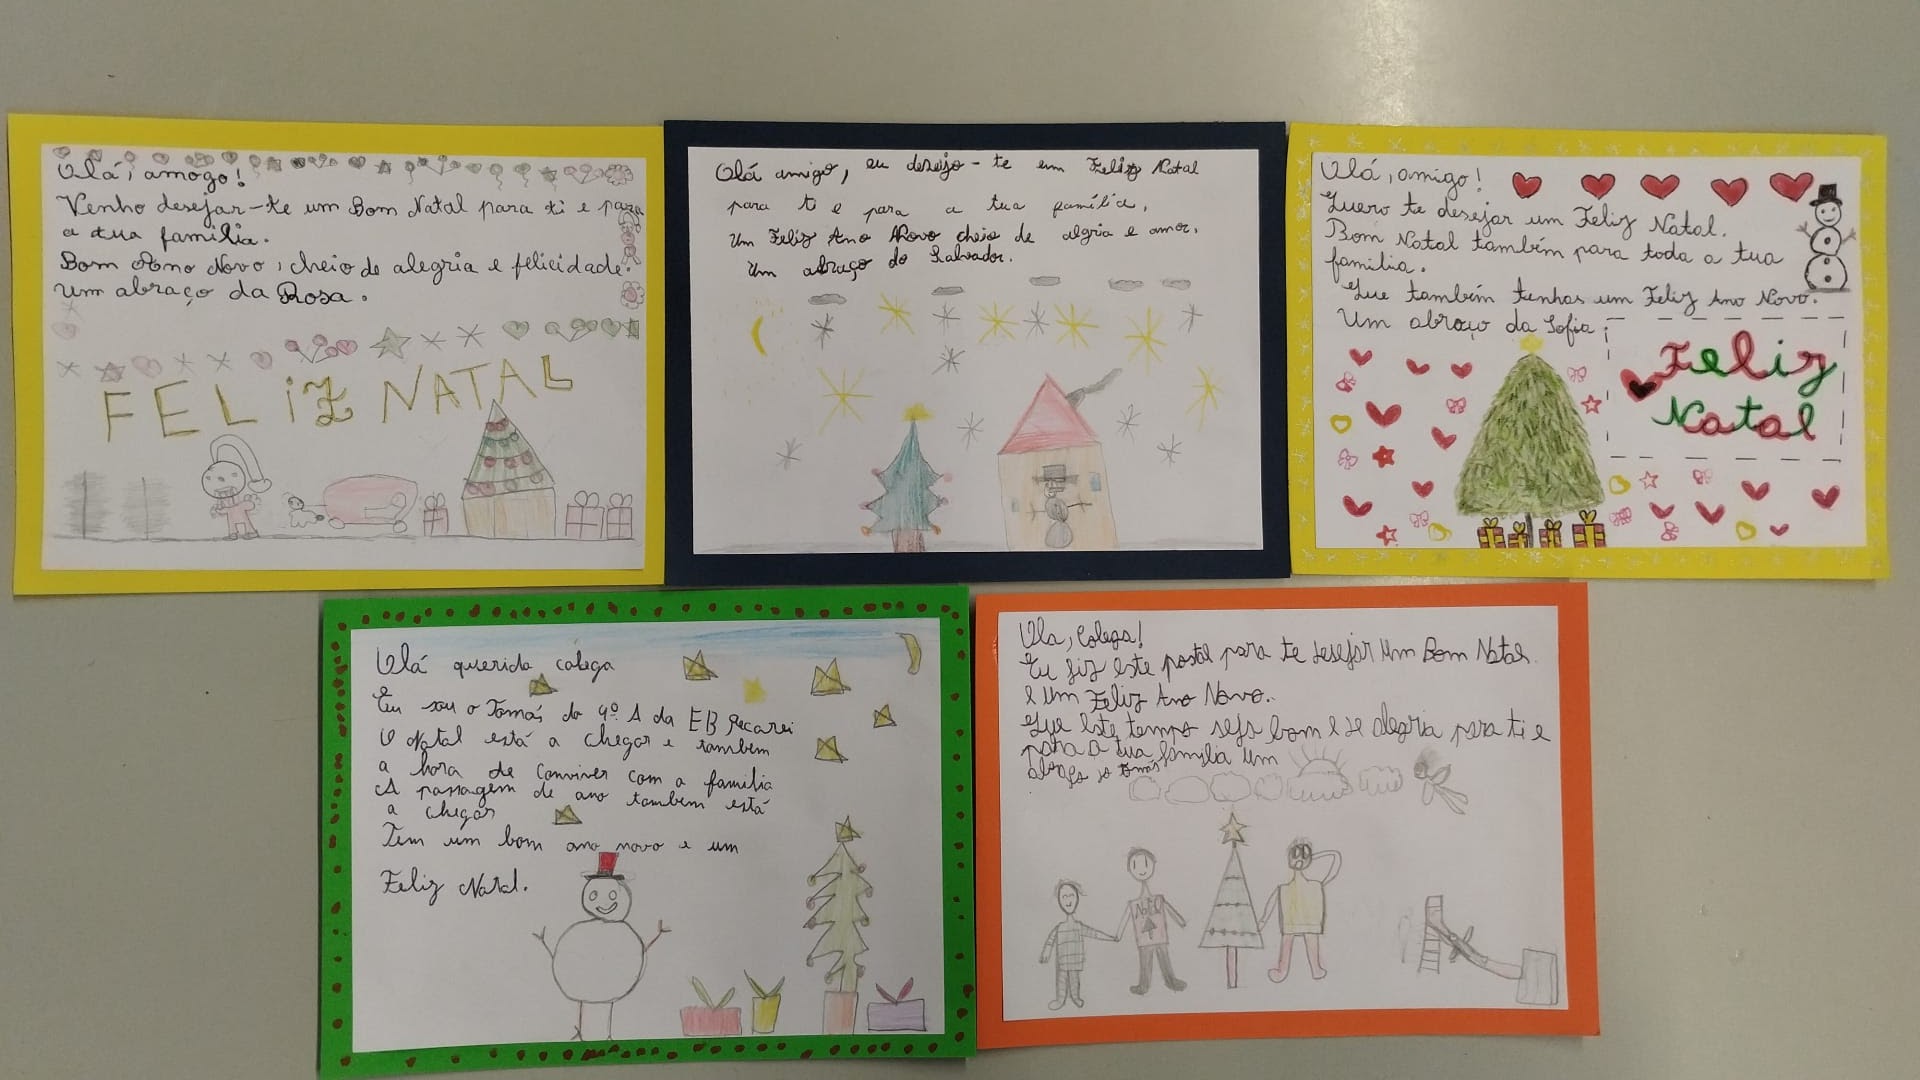 Olá, amogo!
Venho desejar-te um Bom Natal para ti e para
a tua família.
Bom Ano Novo, cheio de alegria e felicidade.
Um abraço da Rosa.
FELIZ NATAL
Olá amigo, eu desejo-te um Feliz Natal
para ti e para a tua família,
Um Feliz Ano Novo cheio de algria e amor.
Um abraço do Salvador.
Olá, amigo!
Quero te desejar um Feliz Natal.
Bom Natal também para toda a tua
família.
Que também tenhas um Feliz Ano Novo.
Um abraço da Sofia.
Feliz
Natal
Olá querida colega
Eu sou o Tomás do 4º A da EB Recarei
O Natal está a chegar e também
a hora de conviver com a família
A passagem de ano também está
a chegar
Tem um bom ano novo e um
Feliz Natal.
Ola, Colega!
Eu fiz este postal para te desejar Um Bom Natal
e Um Feliz Ano Novo.
Que este tempo seja bom e de alegria para ti e
para a tua família Um
do Tomás
Natal